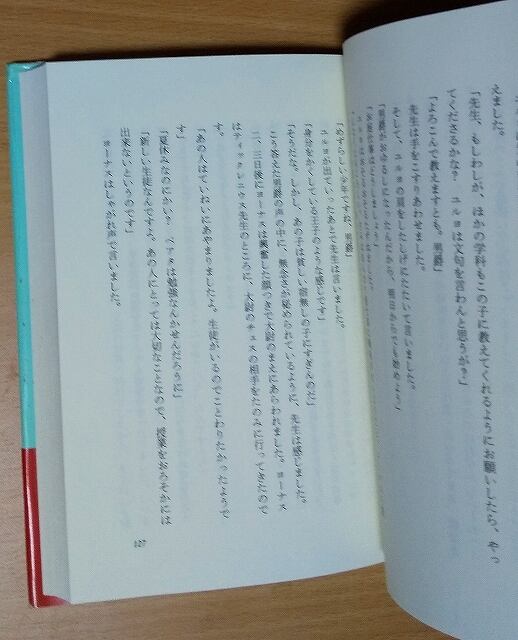 えました。
「先生、もしわしが、ほかの学科もこの子に教えてくれるようにお願いしたら、やっ
てくださるかな? ユルヨは文句を言わんと思うが?」
「よろこんで教えますとも。男爵」
先生は手をこすりあわせました。
そして、ユルヨの肩をしたしげにたたいて言いました。
「男爵がおゆるしになったんだから、明日からでも始めよう」
「お庭の仕事はどうしましょう」
「めずらしい少年ですね、男爵」
ユルヨが出ていったあとで先生は言いました。
「身分をかくしている王子のような感じです」
「そうだな。しかし、あの子は貧しい宿無しの子にすぎんのだ」
こう答えた男爵の声の中に、無念さが秘められているように、先生は感じました。
二、三日後にヨーナスは興奮した顔つきで大尉のまえにあらわれました。ヨーナス
はティックレニウス先生のところに、大尉のチェスの相手をたのみに行ってきたので
す。
「あの人はていねいにあやまりました。生徒がいるのでことわりたかったようで
す」
「夏休みなのにかい? ユルヨは勉強なんかせんだろうに」
「新しい生徒なんですよ。あの人にとっては大切なことなので、授業をおろそかには
出来ないというのです」
ヨーナスはしゃがれ声で言いました。
127